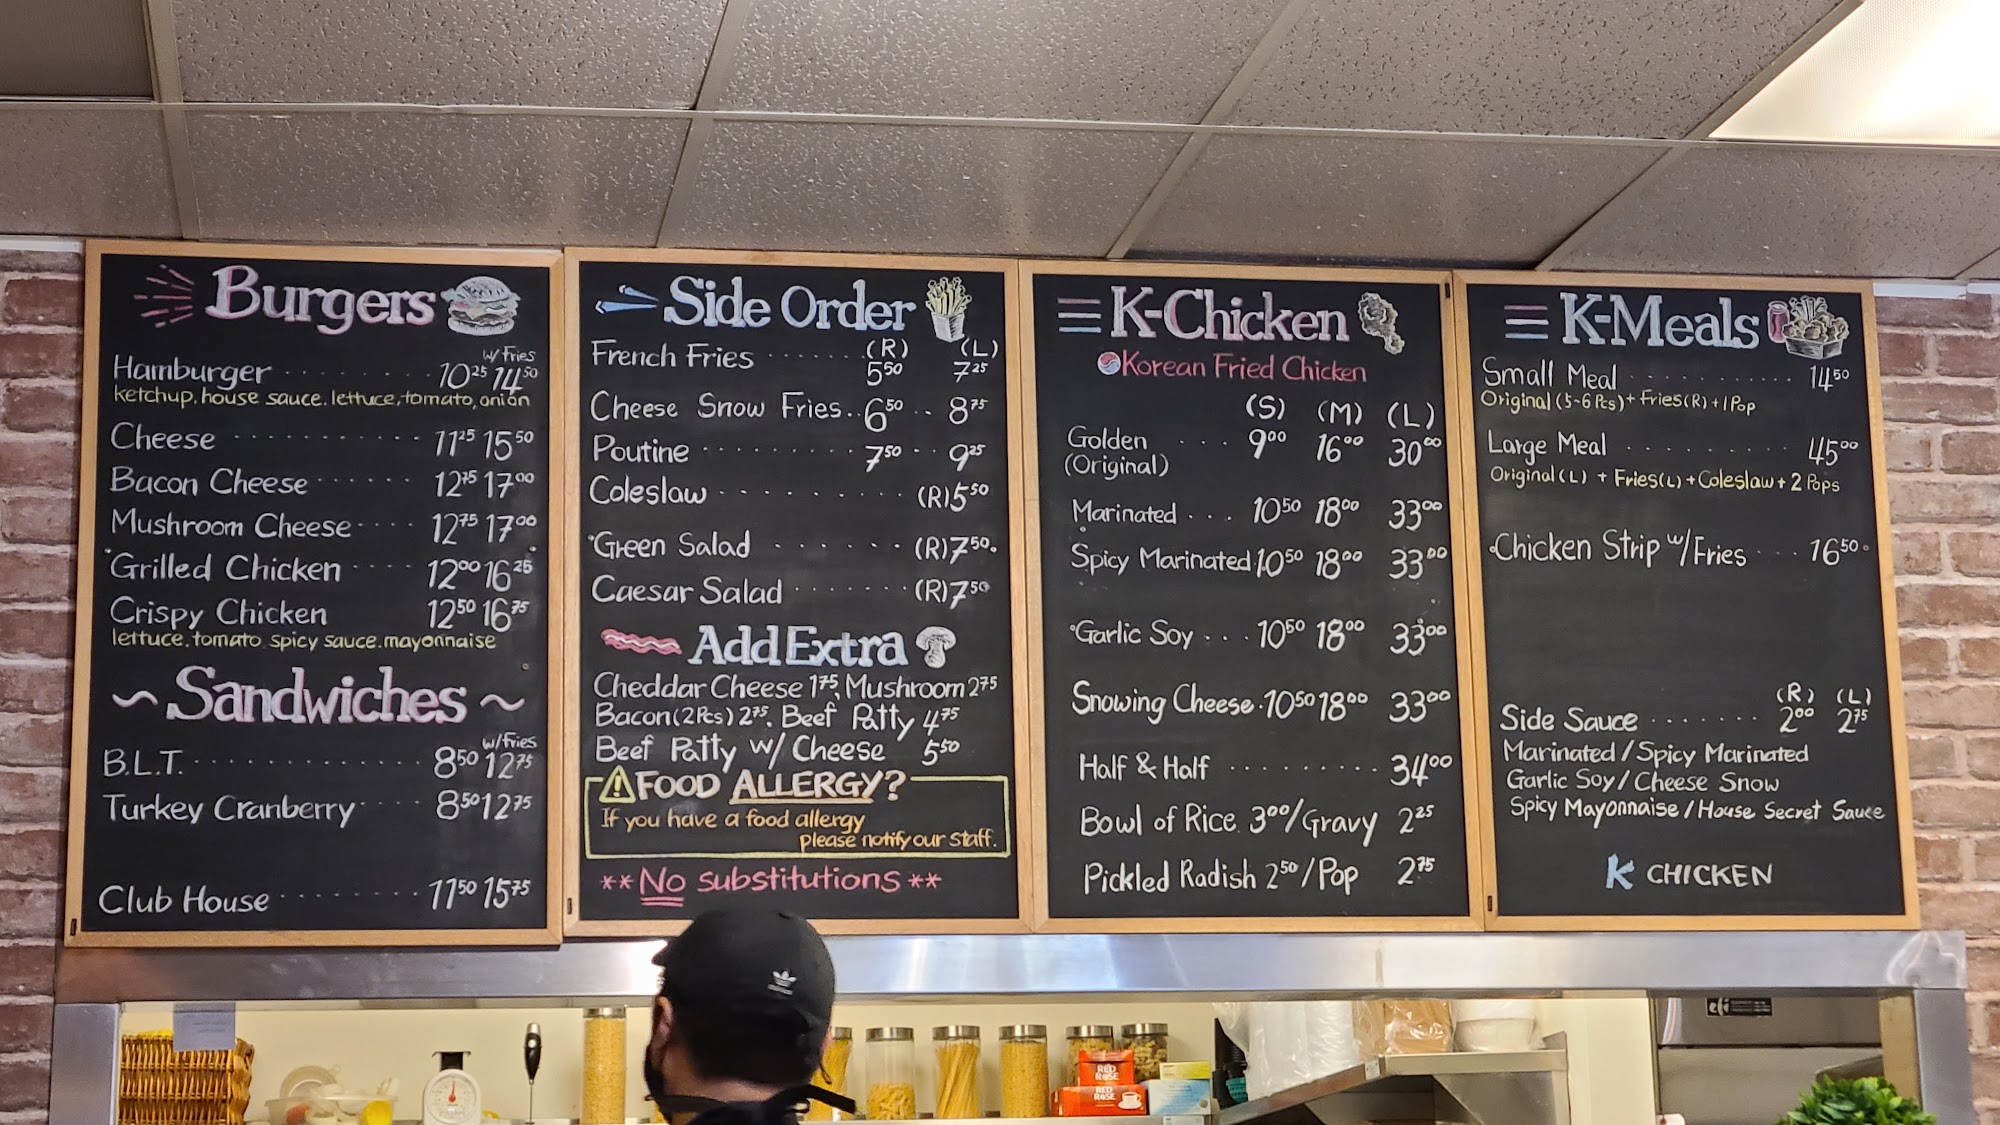 Burgers
w/Fries
Hamburger ........ 10.25 14.50
ketchup, house sauce, lettuce, tomato, onion
Cheese ........... 11.25 15.50
Bacon Cheese ...... 12.75 17.00
Mushroom Cheese .... 12.75 17.00
Grilled Chicken .... 12.00 16.25
Crispy Chicken 12.50 16.75
lettuce, tomato, spicy sauce, mayonnaise
~ Sandwiches ~
w/Fries
B.L.T. ............. 8.50 12.75
Turkey Cranberry .... 8.50 12.75
Club House ........ 11.50 15.75
Side Order
(R) (L)
French Fries ....... 5.50 7.25
Cheese Snow Fries.. 6.50 .. 8.75
Poutine .......... 7.50 .. 9.25
Coleslaw .......... (R) 5.50
Green Salad ....... (R) 7.50
Caesar Salad ...... (R) 7.50
Add Extra
Cheddar Cheese 1.75, Mushroom 2.75
Bacon (2Pcs) 2.75, Beef Patty 4.75
Beef Patty w/ Cheese 5.50
FOOD ALLERGY?
If you have a food allergy
please notify our staff.
** No substitutions **
K-Chicken
Korean Fried Chicken
(S) (M) (L)
Golden .... 9.00 16.00 30.00
(Original)
Marinated ... 10.50 18.00 33.00
Spicy Marinated 10.50 18.00 33.00
Garlic Soy ... 10.50 18.00 33.00
Snowing Cheese . 10.50 18.00 33.00
Half & Half ......... 34.00
Bowl of Rice 3.00 / Gravy 2.25
Pickled Radish 2.50 / Pop 2.75
K-Meals
Small Meal .......... 14.50
Original (5~6 Pcs) + Fries (R) + 1 Pop
Large Meal .......... 45.00
Original (L) + Fries (L) + Coleslaw + 2 Pops
Chicken Strip w/ Fries ... 16.50
(R) (L)
Side Sauce ....... 2.00 2.75
Marinated / Spicy Marinated
Garlic Soy / Cheese Snow
Spicy Mayonnaise / House Secret Sauce
K CHICKEN
RED ROSE
RED ROSE